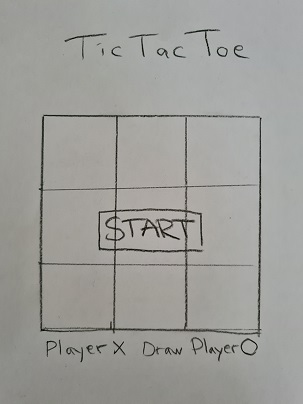 Tic Tac Toe
START
Player X Draw Player O